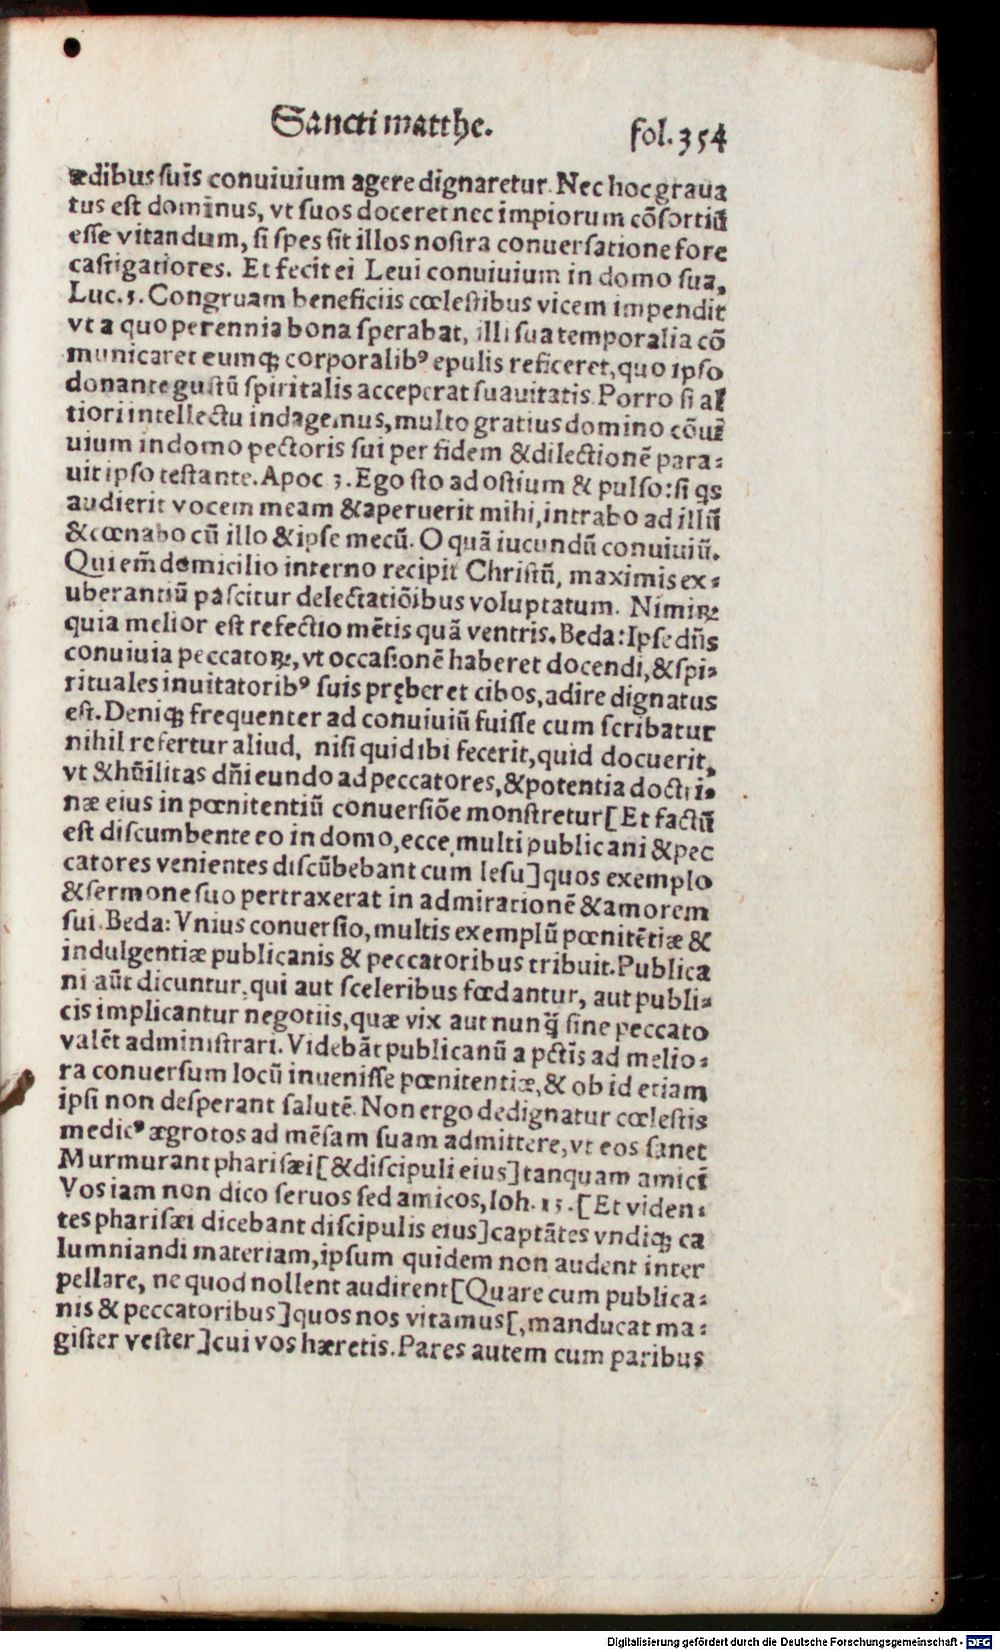 Sancti matthe.
fol. 354
ædibus suis conuiuium agere dignaretur. Nec hoc graua
tus est dominus, vt suos doceret nec impiorum cōsortiū
esse vitandum, si spes sit illos nostra conuersatione fore
castigatiores. Et fecit ei Leui conuiuium in domo sua,
Luc. 5. Congruam beneficiis cœlestibus vicem impendit
vt a quo perennia bona sperabat, illi sua temporalia cō
municaret eumqꝫ corporalibꝰ epulis reficeret, quo ipso
donante gustū spiritalis acceperat suauitatis. Porro si al
tiori intellectu indagemus, multo gratius domino cōui
uium in domo pectoris sui per fidem & dilectionē para⸗
uit ipso testante. Apoc 3. Ego sto ad ostium & pulso: si qs
audierit vocem meam & aperuerit mihi, intrabo ad illū
& cœnabo cū illo & ipse mecū. O quā iucundū conuiuiū.
Qui em̄ domicilio interno recipit Christū, maximis ex⸗
uberantiū pascitur delectatiōibus voluptatum. Nimiꝝ
quia melior est refectio mētis quā ventris. Beda: Ipse dn̄s
conuiuia peccatoꝝ, vt occasionē haberet docendi, & spi⸗
rituales inuitatoribꝰ suis pręberet cibos, adire dignatus
est. Deniqꝫ frequenter ad conuiuiū fuisse cum scribatur
nihil refertur aliud, nisi quid ibi fecerit, quid docuerit,
vt & hūilitas dn̄i eundo ad peccatores, & potentia doctri⸗
næ eius in pœnitentiū conuersiōe monstretur [Et factū
est discumbente eo in domo, ecce multi publicani & pec
catores venientes discūbebant cum Iesu] quos exemplo
& sermone suo pertraxerat in admirationē & amorem
sui. Beda: Vnius conuersio, multis exemplū pœnitētiæ &
indulgentiæ publicanis & peccatoribus tribuit. Publica
ni aūt dicuntur, qui aut sceleribus fœdantur, aut publi⸗
cis implicantur negotiis, quæ vix aut nunq̄ sine peccato
valēt administrari. Videbāt publicanū a pctīs ad melio⸗
ra conuersum locū inuenisse pœnitentiæ, & ob id etiam
ipsi non desperant salutē. Non ergo dedignatur cœlestis
medicꝰ ægrotos ad mēsam suam admittere, vt eos sanet
Murmurant pharisæi [& discipuli eius] tanquam amici
Vos iam non dico seruos sed amicos, Ioh. 15. [Et viden⸗
tes pharisæi dicebant discipulis eius] captātes vndiqꝫ ca
lumniandi materiam, ipsum quidem non audent inter
pellare, ne quod nollent audirent [Quare cum publica⸗
nis & peccatoribus] quos nos vitamus [, manducat ma⸗
gister vester] cui vos hæretis. Pares autem cum paribus
Digitalisierung gefördert durch die Deutsche Forschungsgemeinschaft - DFG